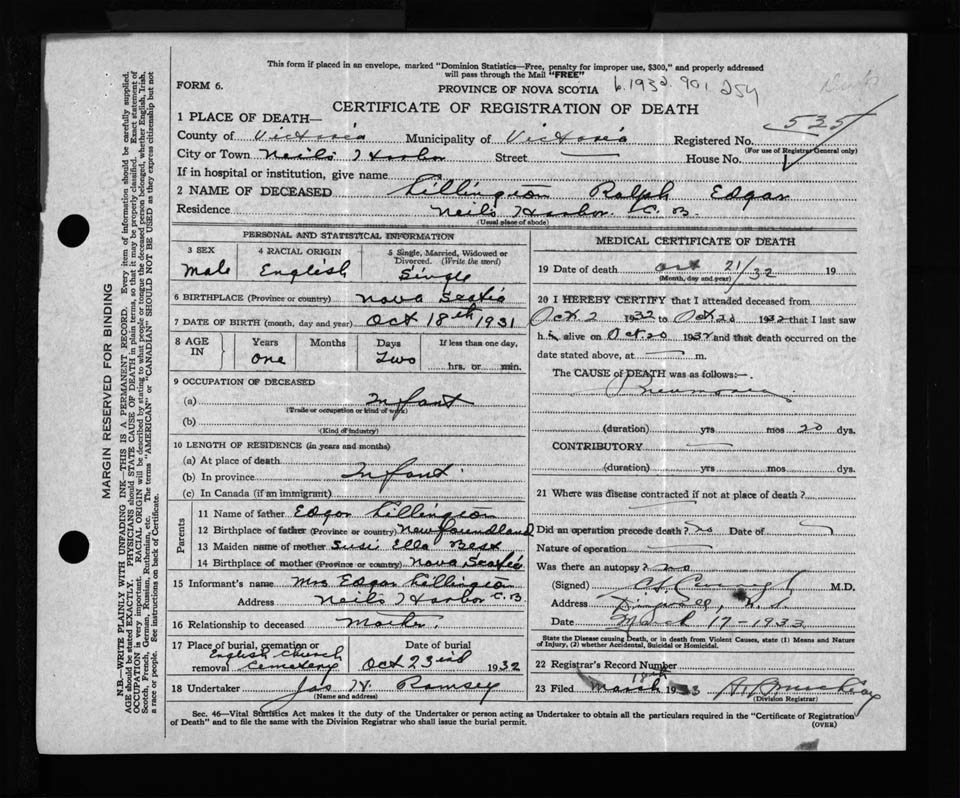 This form if placed in an envelope, marked "Dominion Statistics—Free, penalty for improper use, $300," and properly addressed
will pass through the Mail "FREE"
FORM 6.
PROVINCE OF NOVA SCOTIA b.1932.901.254
CERTIFICATE OF REGISTRATION OF DEATH
1 PLACE OF DEATH—
535
County of Victoria Municipality of Victoria Registered No.
(For use of Registrar General only)
City or Town Neils Harbor Street House No.
If in hospital or institution, give name
2 NAME OF DECEASED Lillington Ralph Edgar
Residence Neils Harbor. C. B.
(Usual place of abode)
PERSONAL AND STATISTICAL INFORMATION
3 SEX 4 RACIAL ORIGIN 5 Single, Married, Widowed or Divorced. (Write the word)
Male English Single
6 BIRTHPLACE (Province or country) Nova Scotia
7 DATE OF BIRTH (month, day and year) Oct 18th 1931
8 AGE IN Years Months Days If less than one day,
One Two hrs. or min.
9 OCCUPATION OF DECEASED
(a) Infant
(Trade or occupation or kind of work)
(b)
(Kind of industry)
10 LENGTH OF RESIDENCE (in years and months)
(a) At place of death
(b) In province Infant
(c) In Canada (if an immigrant)
Parents
11 Name of father Edgar Lillington
12 Birthplace of father (Province or country) Newfoundland
13 Maiden name of mother Susi Ella Best
14 Birthplace of mother (Province or country) Nova Scotia
15 Informant's name Mrs Edgar Lillington
Address Neils Harbor C. B.
16 Relationship to deceased Mother.
17 Place of burial, cremation or removal Date of burial
English Church Cemetery Oct 23rd 1932
18 Undertaker Jas W. Ramsey
(Name and address)
MEDICAL CERTIFICATE OF DEATH
19 Date of death Oct 21/32 19
(Month, day and year)
20 I HEREBY CERTIFY that I attended deceased from
Oct 2 1932 to Oct 20 1932 that I last saw
h im alive on Oct. 20 1932 and that death occurred on the
date stated above, at m.
The CAUSE of DEATH was as follows:—
Pneumonia
(duration) yrs mos 20 dys.
CONTRIBUTORY
(duration) yrs mos dys.
21 Where was disease contracted if not at place of death?
Did an operation precede death? no Date of
Nature of operation
Was there an autopsy? no
(Signed) M.D.
Address
Date March 17 - 1933
State the Disease causing Death, or in death from Violent Causes, state (1) Means and Nature
of Injury, (2) whether Accidental, Suicidal or Homicidal.
22 Registrar's Record Number
23 Filed March 18th 1933
(Division Registrar)
Sec. 46—Vital Statistics Act makes it the duty of the Undertaker or person acting as Undertaker to obtain all the particulars required in the "Certificate of Registration
of Death" and to file the same with the Division Registrar who shall issue the burial permit.
(OVER)
MARGIN RESERVED FOR BINDING
N.B.—WRITE PLAINLY WITH UNFADING INK—THIS IS A PERMANENT RECORD. Every item of information should be carefully supplied.
AGE should be stated EXACTLY. PHYSICIANS should STATE CAUSE OF DEATH in plain terms, so that it may be properly classified. Exact statement of
OCCUPATION is very important. RACIAL ORIGIN will be described by stating to what people or tongue the deceased person belonged, whether English, Irish,
Scotch, French, German, Russian, Ruthenian, etc. The terms "AMERICAN" or "CANADIAN" SHOULD NOT BE USED as they express citizenship but not
a race or people. See instructions on back of Certificate.